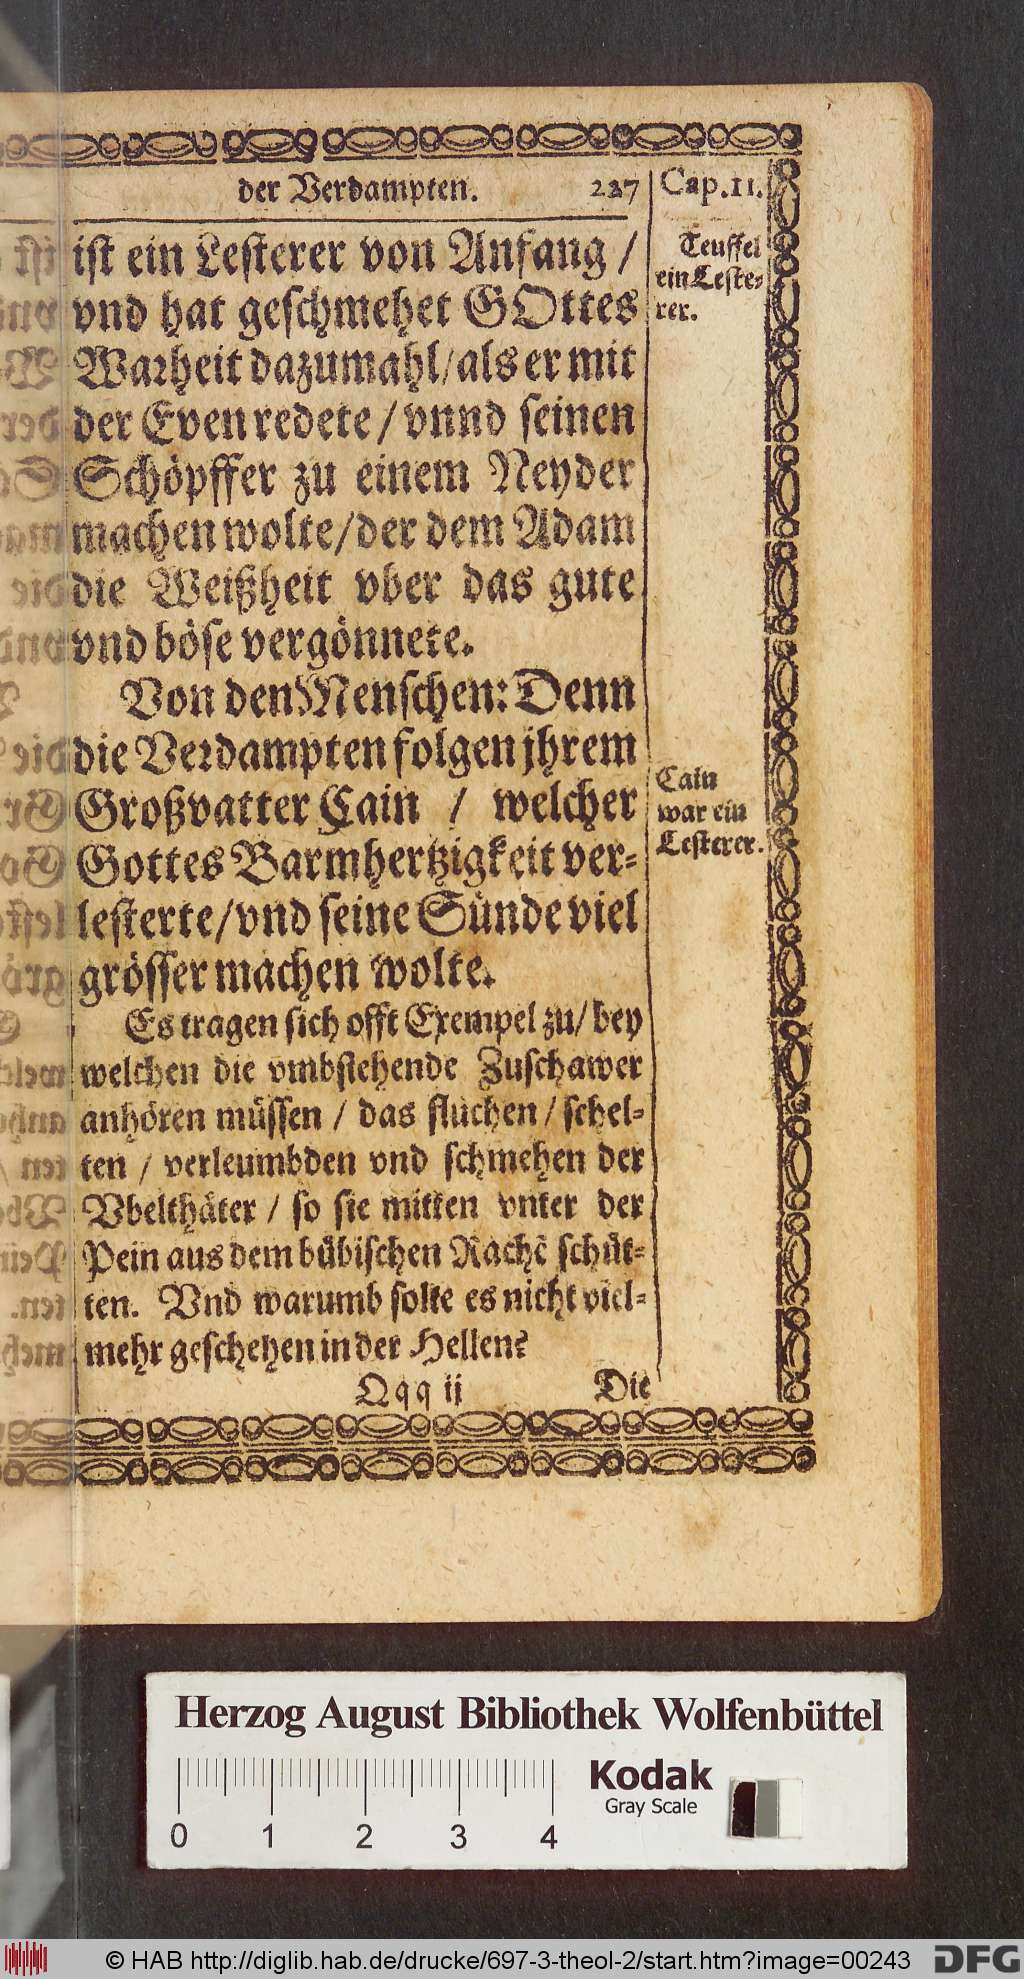 der Verdampten. 227 Cap.11.
ist ein Lesterer von Anfang /
vnd hat geschmehet GOttes
Warheit dazumahl/als er mit
der Even redete / vnnd seinen
Schöpffer zu einem Neyder
machen wolte/der dem Adam
die Weißheit vber das gute
vnd böse vergönnete.
Teuffel
ein Leste-
rer.
Von den Menschen: Denn
die Verdampten folgen jhrem
Großvatter Cain / welcher
Gottes Barmhertzigkeit ver-
lesterte/vnd seine Sünde viel
grösser machen wolte.
Cain
war ein
Lesterer.
Es tragen sich offt Exempel zu/ bey
welchen die vmbstehende Zuschawer
anhören müssen / das fluchen / schel-
ten / verleumbden vnd schmehen der
Vbelthäter / so sie mitten vnter der
Pein aus dem bübischen Rachē schüt-
ten. Vnd warumb solte es nicht viel-
mehr geschehen in der Hellen?
Qqq ij Die
Herzog August Bibliothek Wolfenbüttel
Kodak
Gray Scale
0 1 2 3 4
© HAB http://diglib.hab.de/drucke/697-3-theol-2/start.htm?image=00243 DFG